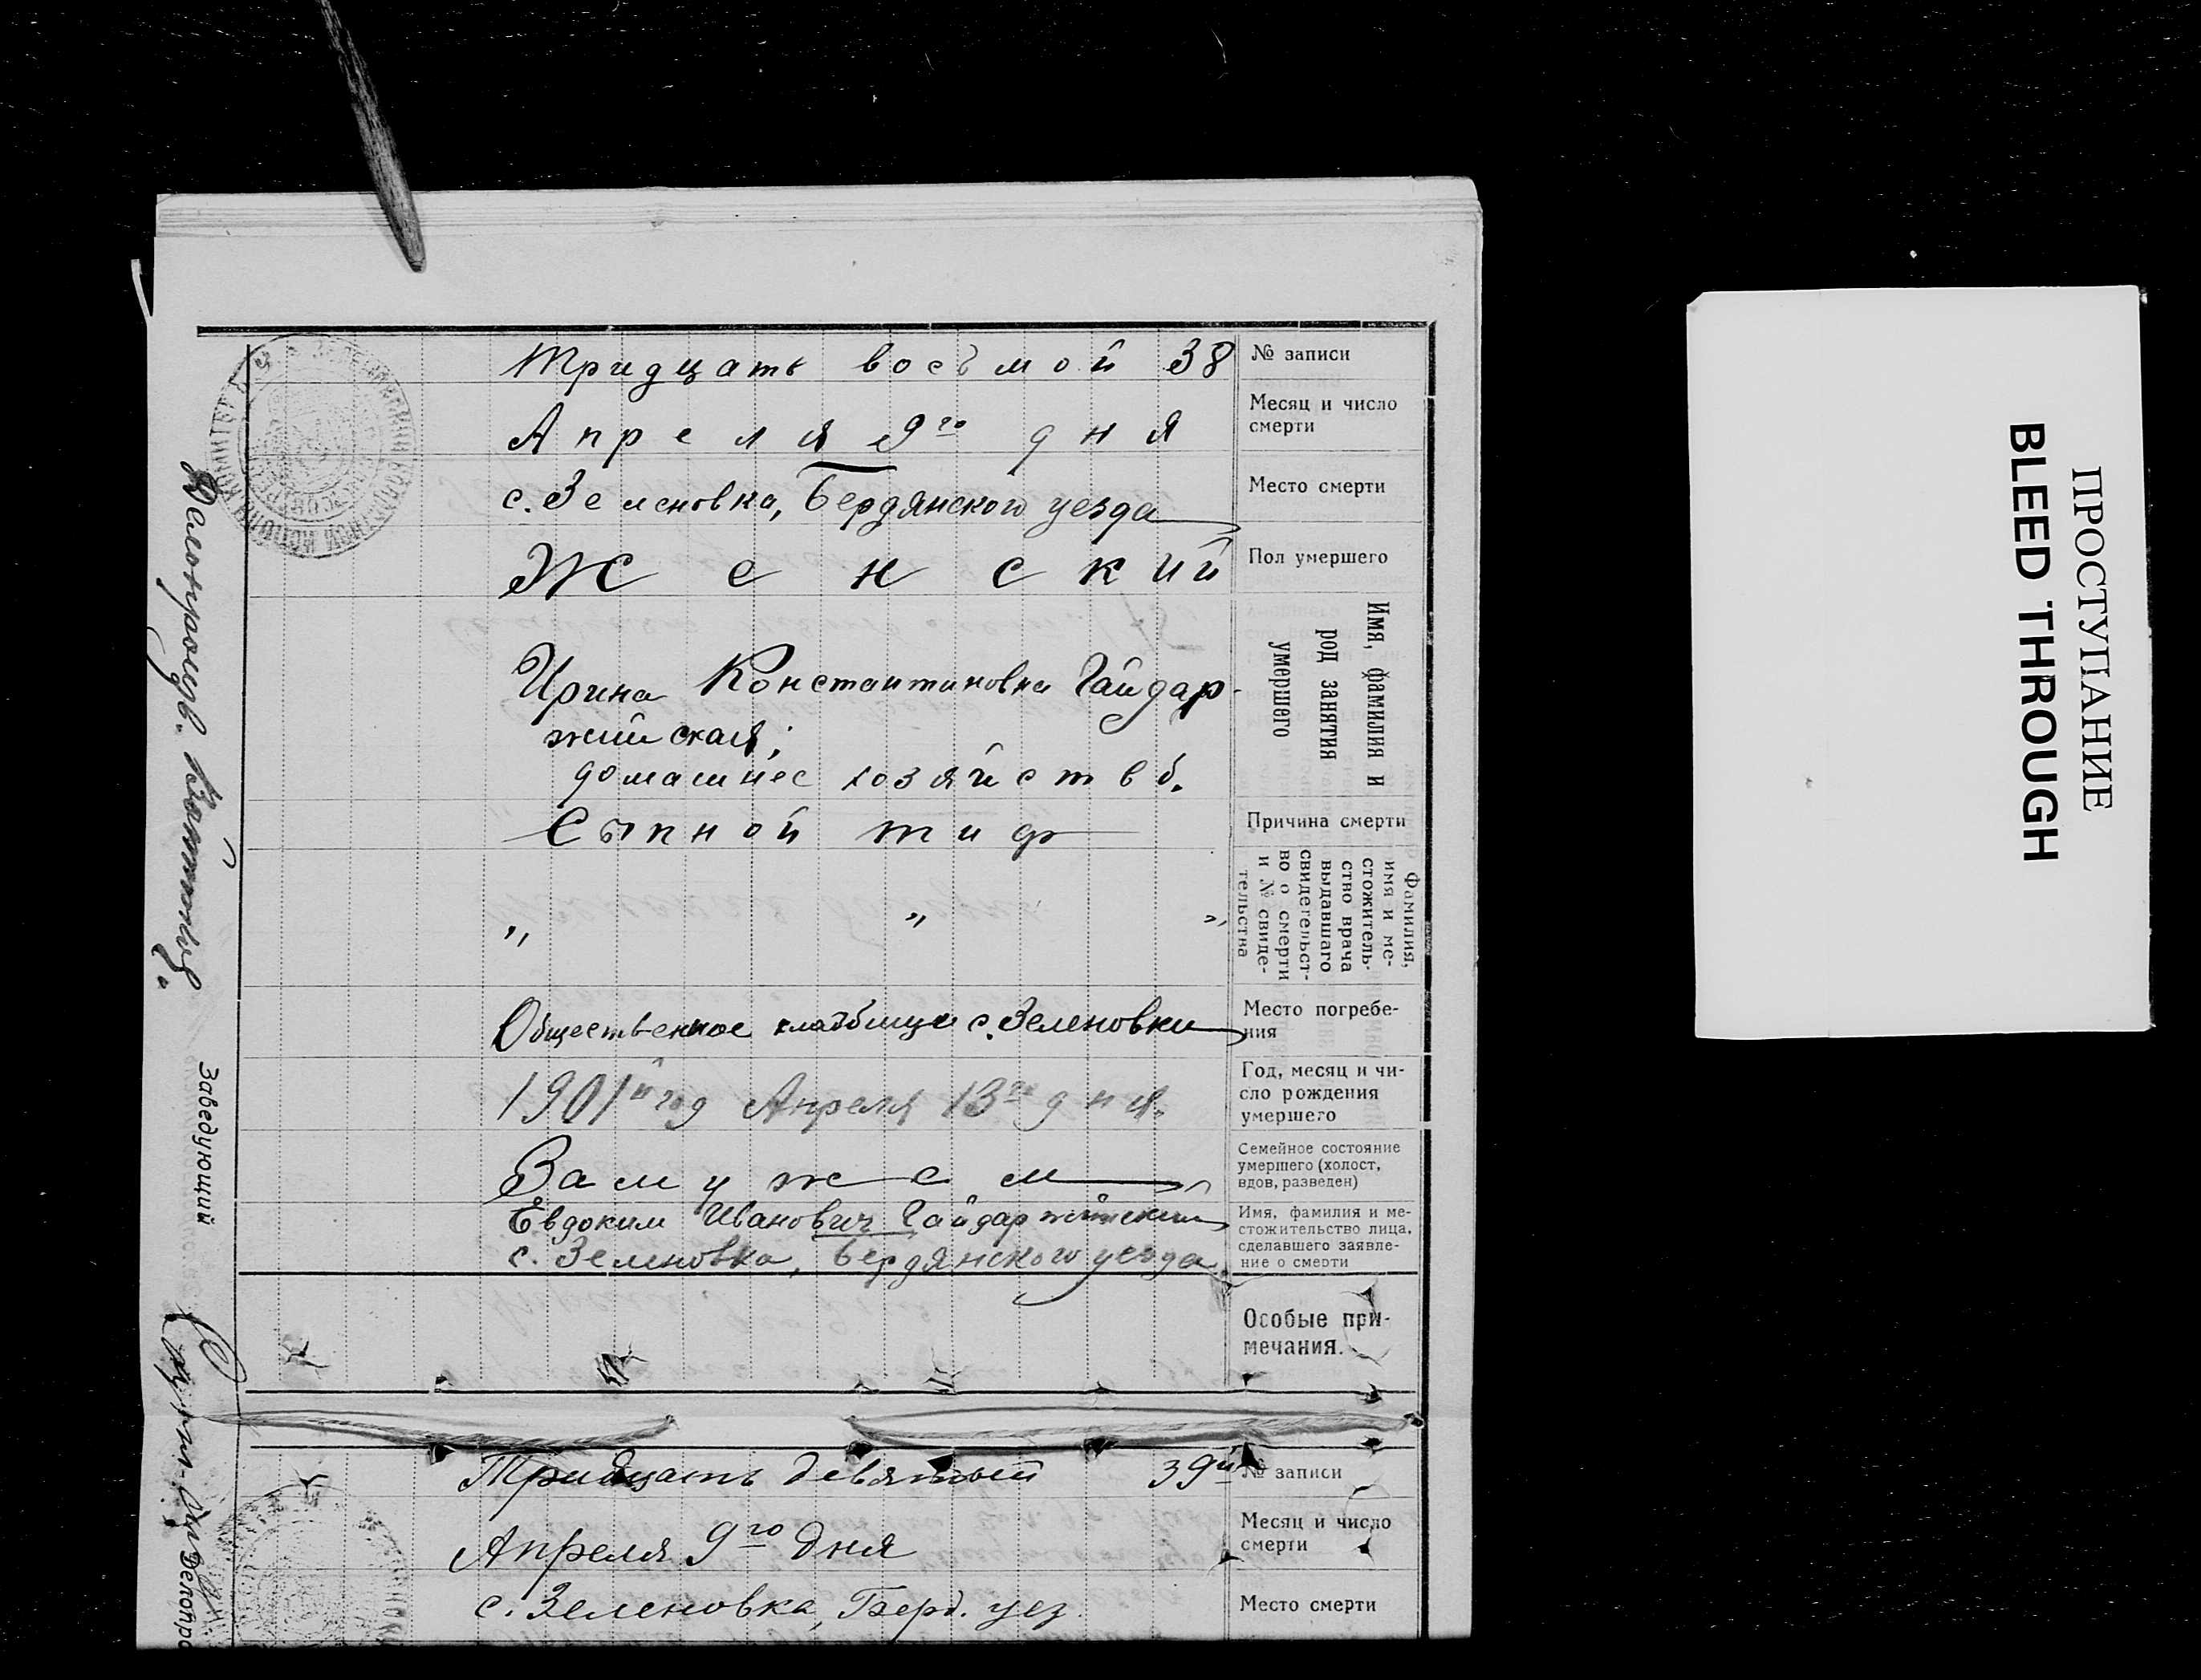 Тридцать восьмой 38
№ записи
Апреля 9го дня
Месяц и число
смерти
с. Зеленовка, Бердянского уезда
Место смерти
Женский
Пол умершего
Ирина Константиновна Гайдар-
жийская;
домашнее хозяйство.
Имя, фамилия и
род занятия
умершего
Сыпной тиф
Причина смерти
„ „ „
Фамилия,
имя и ме-
стожитель-
ство врача
выдавшего
свидетельст-
во о смерти
и № свиде-
тельства
Общественное кладбище с. Зеленовки
Место погребе-
ния
1901й год Апреля 13го дня.
Год, месяц и чи-
сло рождения
умершего
Замужем
Семейное состояние
умершего (холост,
вдов, разведен)
Евдоким Иванович Гайдаржийский
с. Зеленовка, Бердянского уезда
Имя, фамилия и ме-
стожительство лица,
сделавшего заявле-
ние о смерти
Особые при-
мечания.
Заведующий
Делопроизв.
Тридцать девятый 39й
№ записи
Апреля 9го дня
Месяц и число
смерти
с. Зеленовка, Берд. уез.
Место смерти
Делопро
ПРОСТУПАНИЕ
BLEED THROUGH